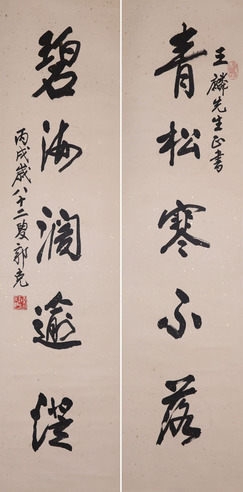 王麟先生正书
青松寒不落
碧海阔逾澄
丙戌岁八十二叟郭克